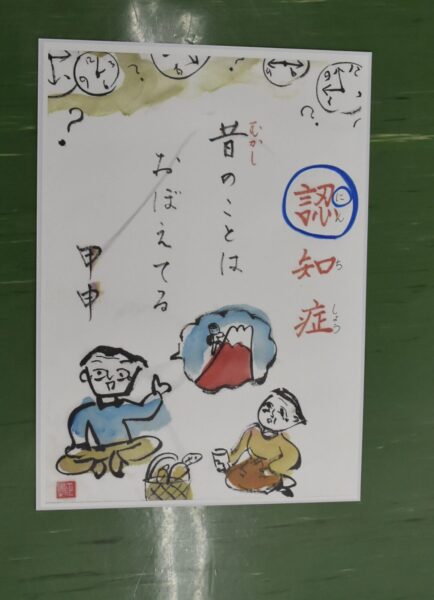 認知症
にんちしょう
昔のことは
むかし
おぼえてる
甲申
?
?
?
?